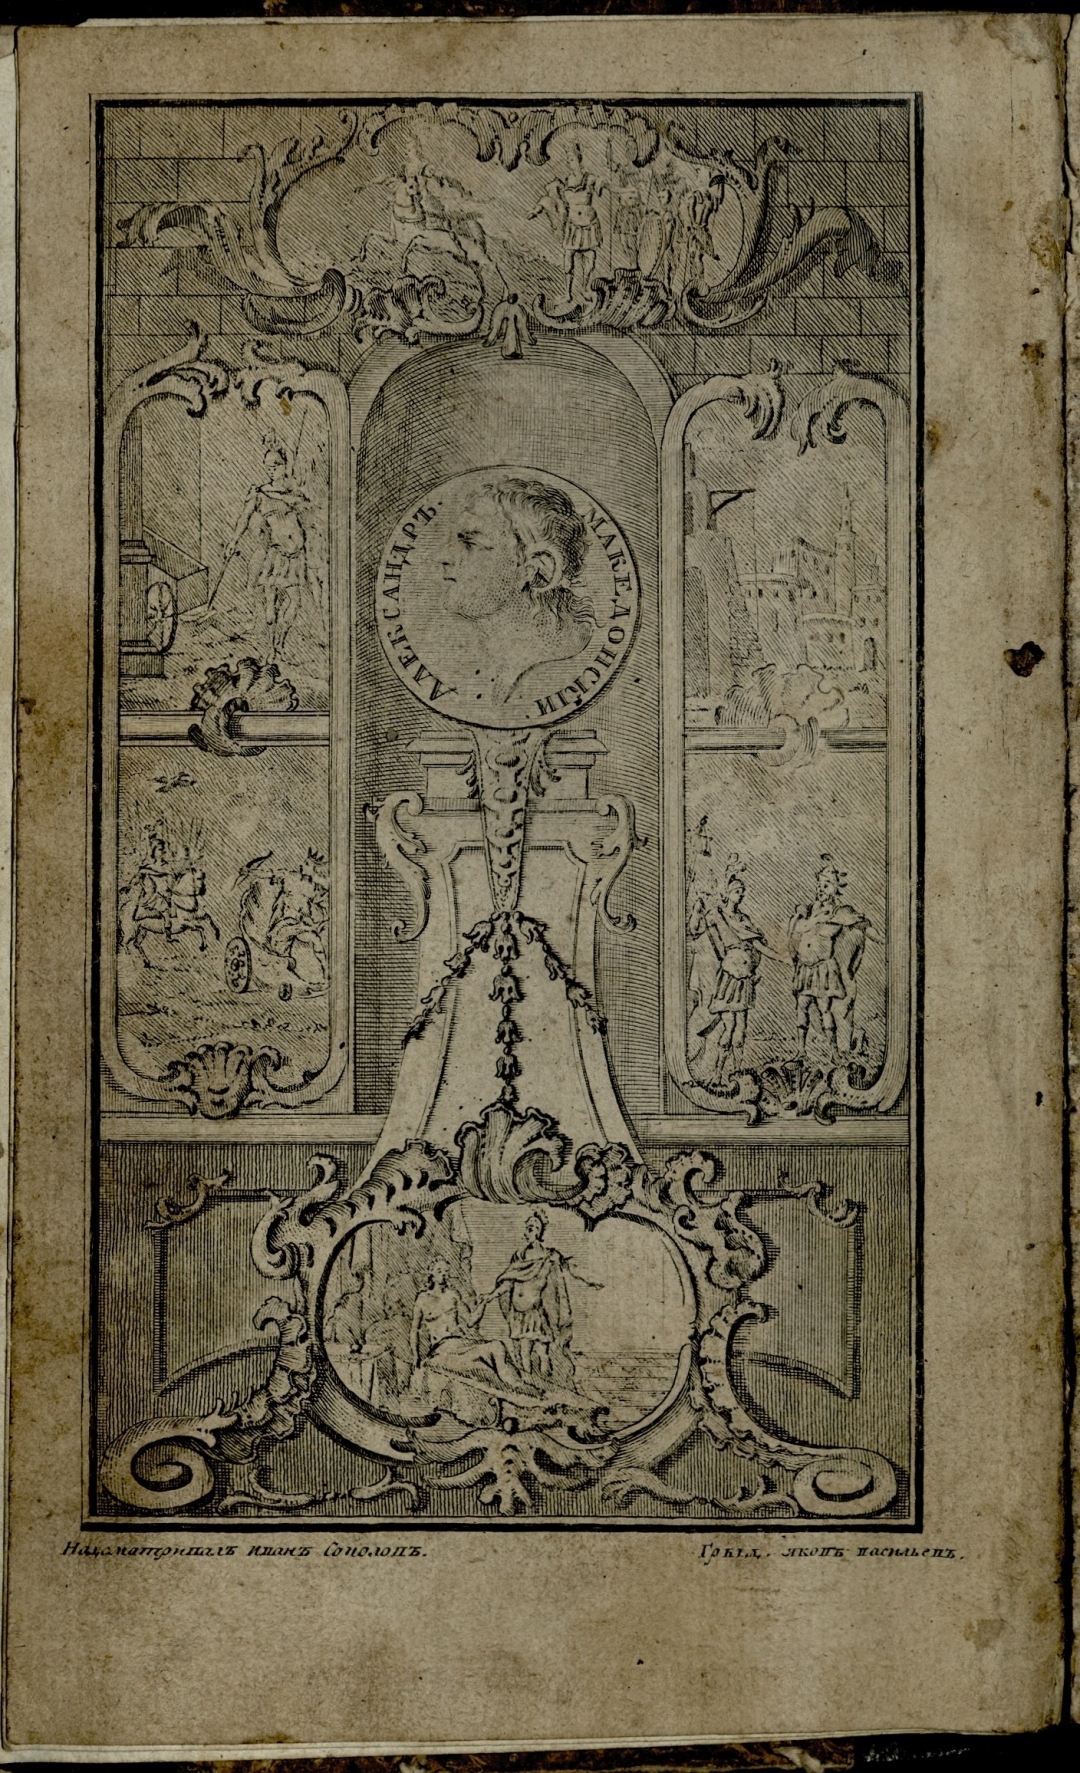 АЛЕКСАНДРЪ. МАКЕДОНСКІИ.
Надсматривалъ иванъ Соколовъ.
Грыд. яковъ васильевъ.